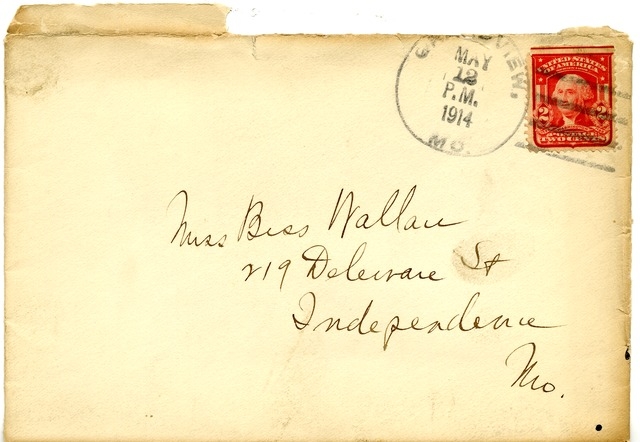 GRANDVIEW,
MAY
12
P.M.
1914
MO.
UNITED STATES
OF AMERICA
2 2
POSTAGE
TWO CENTS
Miss Bess Wallace
219 Deleware St
Independence
Mo.